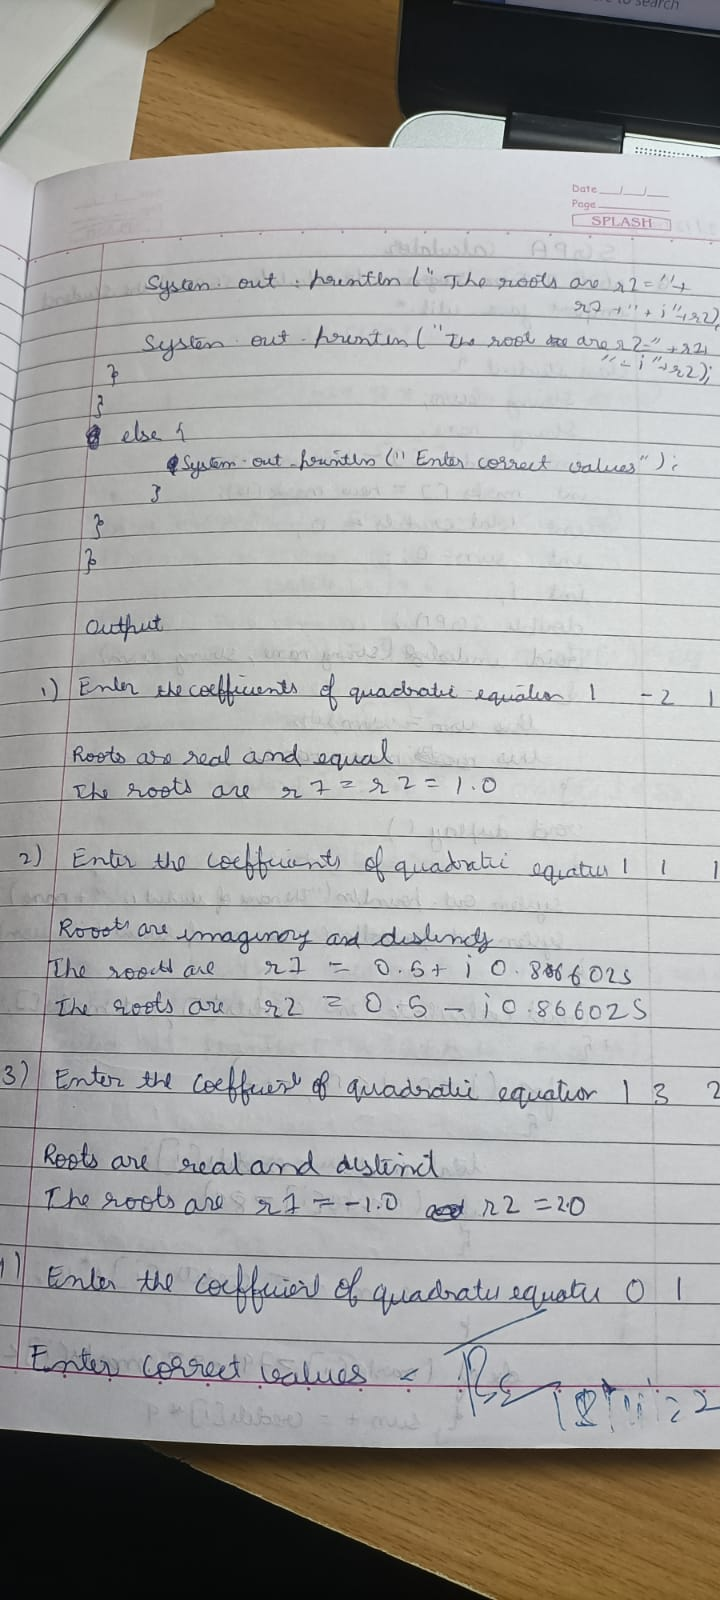 to search
Date
Page
SPLASH
System. out . println (" The roots are r1 = "+
r1 +" + i"+r2)
System. out . println ("The root are r2=" +r1+
" - i "+r2);
}
}
else {
System. out . println (" Enter correct values" );
}
}
}
Output
1) Enter the coefficients of quadratic equation 1 -2 1
Roots are real and equal
The roots are r1 = r2 = 1.0
2) Enter the coefficients of quadratic equation 1 1 1
Rooots are imaginary and distinct
The roots are r1 = 0.5 + i 0.866025
The roots are r2 = 0.5 - i 0.866025
3) Enter the coefficient of quadratic equation 1 3 2
Roots are real and distinct
The roots are r1 = -1.0 r2 = 2.0
Enter the coefficient of quadratic equation 0 1
Enter correct values